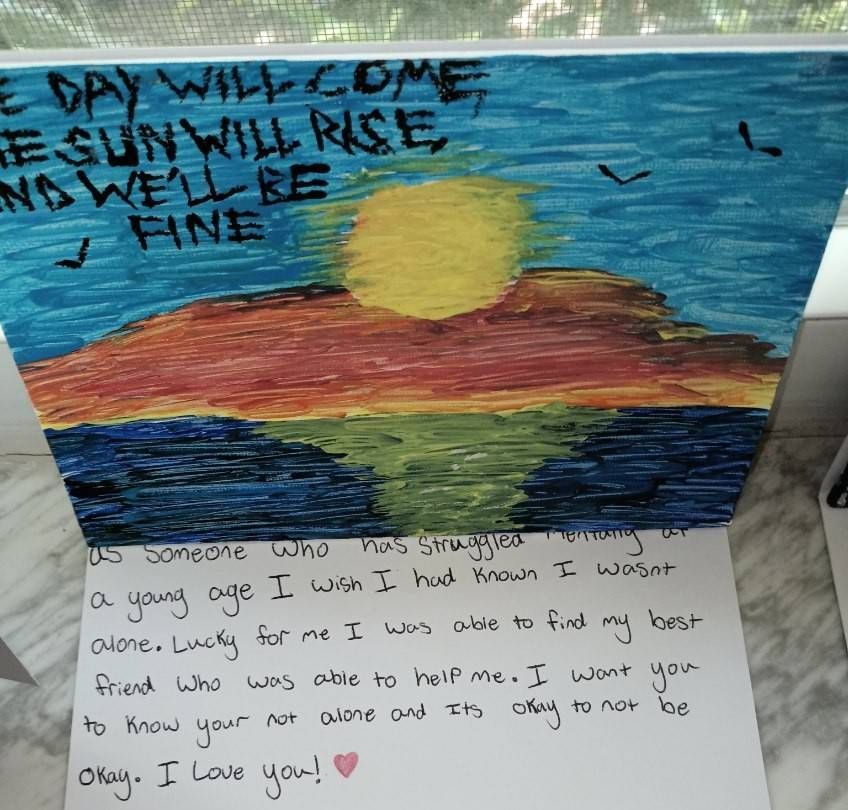 E DAY WILL COME,
HE SUN WILL RISE,
ND WE'LL BE
FINE
as Someone who has struggled mentally at
a young age I wish I had known I wasnt
alone. Lucky for me I was able to find my best
friend who was able to help me. I want you
to know your not alone and Its okay to not be
okay. I Love you! ❤